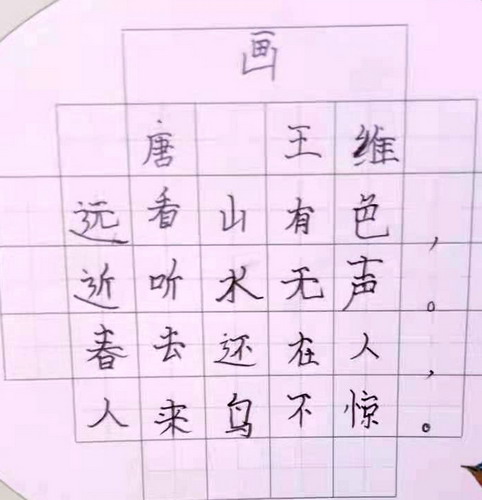 画
唐 王维
远看山有色，
近听水无声。
春去还在人，
人来鸟不惊。